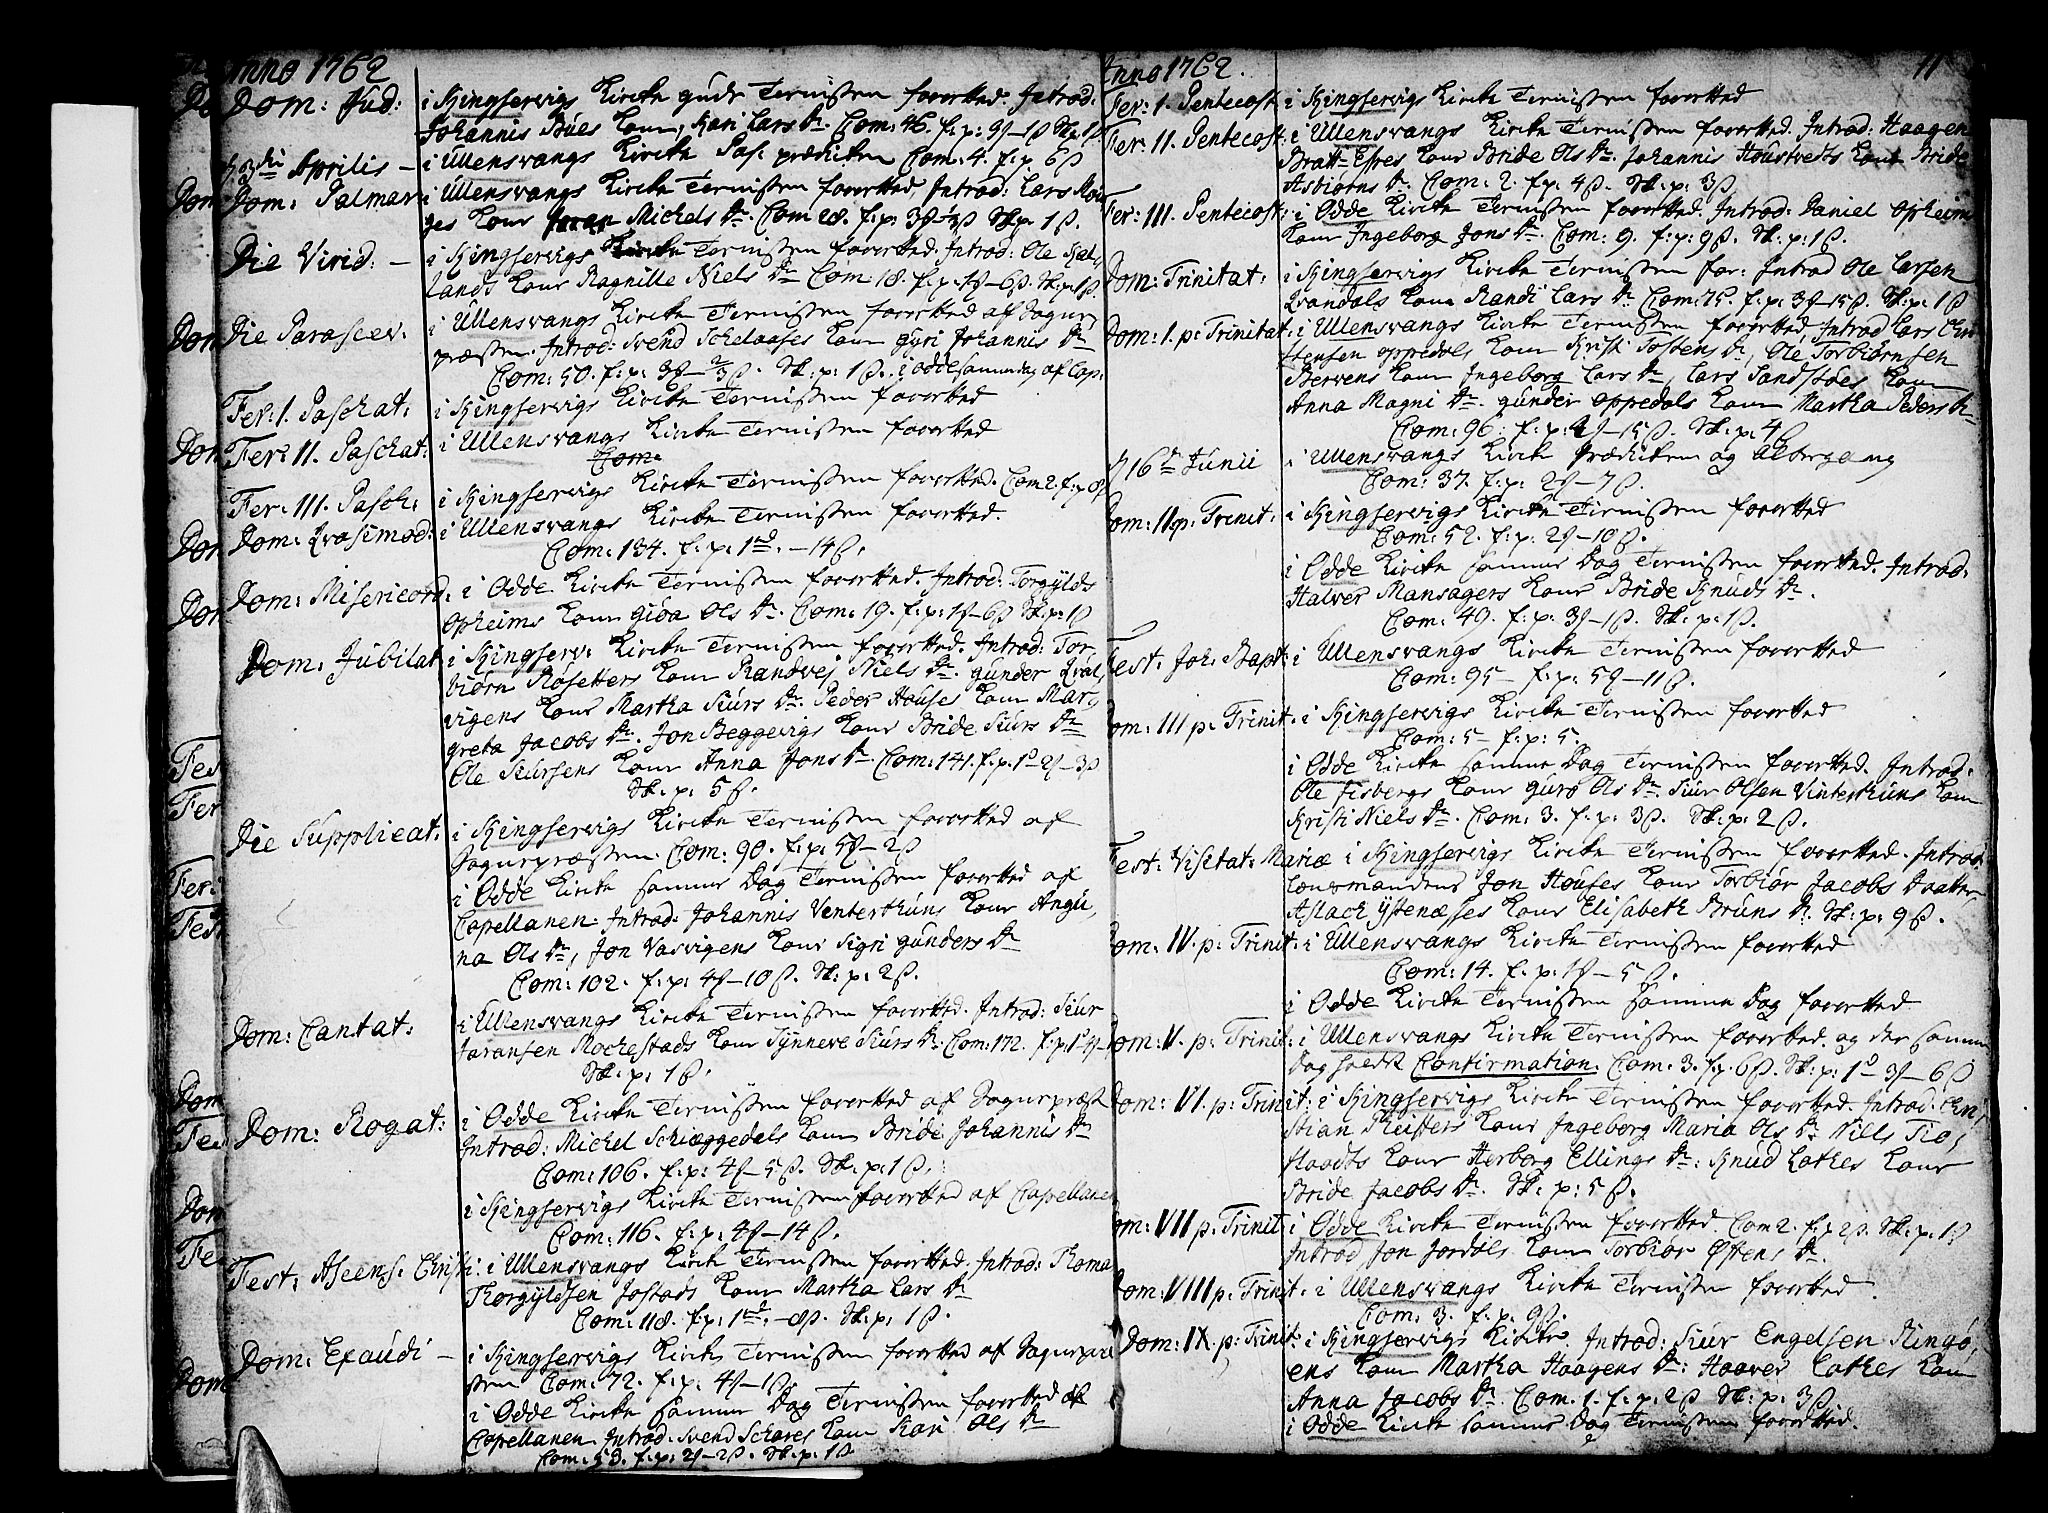 Anno 1762
Dom: Jud: i Kingservigs Kircke guds Tienisten forretted. Introd:
Johannis Bues Kone, Kari Lars Dr. Com: 46. f: p: 3
i Ullensvangs Kircke Pas: prædiken Com: 4. f: p 6 ß
Aprilis –
Dom: Palmar: i Ullensvangs Kircke Tienisten forretted Introd: Lars
ges Kone Michels Dr. Com 28. f: p: Sk: p. 1 ß.
Die Virid: – i Kingservigs Kircke Tienisten forretted. Introd: Ole
lands Kone Ragnille Niels Dr Com: 18. f: p: – 6 ß. Sk: p: 1 ß.
Die Parascev: i Ullensvangs Kircke Tienisten forretted af Sogne,
præsten. Introd: Svend Kone Gyri Johannis Dr
Com: 50. f: p: Sk: p: 1 ß. i Odde samme dag af Cap:
Fer: 1. Paschat: i Kingservigs Kircke Tienisten forretted
Fer: 11. Paschat: i Ullensvangs Kircke Tienisten forretted
Com:
Fer: 111. Pasch: i Kingservigs Kircke Tienisten forretted. Com 2. f: p 8 ß
Dom: Qvasimod: i Ullensvangs Kircke Tienisten forretted.
Com: 134. f: p: 1 – 14 ß.
Dom: Misericord: i Odde Kircke Tienisten forretted. Introd: Torgylds
Opheims Kone Giøa Ols Dr. Com: 19. f: p: – 6 ß Sk: p: 1 ß
Dom: Jubilat: i Kingserv: Kircke Tienisten forretted. Introd: Tor,
biørn Røsetters Kone Randvej Niels Dr. Gunder Qval,
vigens Kone Martha Siurs Dr. Peder Houses Kone Mar,
greta Jacobs Dr. Jon Beggevigs Kone Bride Siurs Dr
Ole Siursens Kone Anna Jons Dr. Com: 141. f: p.
Sk: p: 5 ß.
Die Supplicat: i Kingservigs Kircke Tienisten forretted af
Sognepræsten. Com: 90. f: p: – 2 ß
i Odde Kircke samme Dag Tienisten forretted af
Capellanen. Introd: Johannis Venterthuns Kone Angu,
na Ols Dr, Jon Vasvigens Kone Sigri Gunders Dr
Com: 102. f: p: – 10 ß. Sk: p: 2 ß.
Dom: Cantat: i Ullensvangs Kircke Tienisten forretted. Introd: Siur
Jaransen Mochestads Kone Synneve Siurs Dr. Com: 172. f: p:
Sk: p: 1 ß.
Dom: Rogat: i Odde Kircke Tienisten forretted af Sognepræst
Introd: Michel Schiæggedals Kone Bride Johannis Dr
Com: 106. f: p: – 5 ß. Sk: p: 1 ß.
i Kingservigs Kircke Tienisten forretted af Capellanen
Com: 116. f: p: – 14 ß.
Fest: Ascens: Christi: i Ullensvangs Kircke Tienisten forretted. Introd: Thomas
Thorgyldsen Jostads Kone Martha Lars Dr
Com: 118. f: p: – 8 ß. Sk: p: 1 ß.
Dom: Exaudi – i Kingservigs Kircke Tienisten forretted af Sognepræ
sten Com: 72. f: p: – 1 ß.
i Odde Kircke samme Dag Tienisten forretted af
Capellanen. Introd: Svend Kone Kari Ols Dr
f: p: – 2 ß. Sk: p: 1 ß
Anno 1762. 11
Fer: 1. Pentecost: i Kingservigs Kircke Tienisten forretted
Fer: 11. Pentecost: i Ullensvangs Kircke Tienisten forretted. Introd: Haagen
Bratt-Espes Kone Bride Ols Dr. Johannis Houstvedts Kone Bride
Asbiørns Dr. Com: 2. f: p: 4 ß. Sk: p: 3 ß
Fer: 111. Pentecost: i Odde Kircke Tienisten forretted. Introd: Daniel Opheims
Kone Ingeborg Jons Dr. Com: 9. f: p: 9 ß. Sk: p: 1 ß.
Dom: Trinitat: i Kingservigs Kircke Tienisten for: Introd Ole Larsen
Qvandals Kone Randi Lars Dr Com: 75. f: p: – 15 ß. Sk: p: 1 ß
Dom: 1. p: Trinitat: i Ullensvangs Kircke Tienisten forretted. Introd Lars Chri
stensen Oppedals Kone Kristi Tostens Dr, Ole Torbiørnsen
Bervens Kone Ingeborg Lars Dr, Lars Sandstøes Kone
Anna Magni Dr. Gunder Oppedals Kone Martha Peders Dr.
Com: 96. f: p: – 15 ß. Sk: p: 4 ß
16de Junii i Ullensvangs Kircke Prædiken og altergang
Com: 37. f: p: – 7 ß.
Dom: 11. p: Trinit: i Kingservigs Kircke Tienisten forretted
Com: 52. f: p: – 10 ß.
i Odde Kircke samme Dag Tienisten forretted. Introd:
Halver Mansagers Kone Bride Knuds Dr.
Com: 49. f: p: – 1 ß. Sk: p: 1 ß.
Fest: Joh: Bapt: i Ullensvangs Kircke Tienisten forretted
Com: 95 – f: p: – 11 ß.
Dom: 111 p: Trinit: i Kingservigs Kircke Tienisten forrettet
Com: 5 – f: p: 5.
i Odde Kircke samme Dag Tienisten forretted. Introd:
Ole Jisbergs Kone Guro Ols Dr. Siur Olsen Vinterthuns Kone
Kristi Niels Dr. Com: 3. f: p: 3 ß. Sk: p: 2 ß.
Fest: Visitat: Mariæ i Kingservigs Kircke Tienisten forretted. Introd:
Jon Houses Kone Torbiør Jacobs Daatter,
Aslach Ystenæsses Kone Elisabeth Bruns Dr. Sk: p: 9 ß.
Dom: IV. p: Trinit: i Ullensvangs Kircke Tienisten forrettet
Com: 14. f: p: – 5 ß.
i Odde Kircke Tienisten samme Dag forrettet
Dom: V. p: Trinit: i Ullensvangs Kircke Tienisten forrettet. og der samme
Dag holdt Confirmation. Com: 3. f: p. 6 ß. Sk: p: – 6 ß
Dom: VI. p: Trinit: i Kingservigs Kircke Tienisten forrettet. Introd: Chri,
stian Kone Ingeborg Maria Ols Dr. Nills Tio,
Kone Herborg Ellings Dr: Knud Lothes Kone
Bride Jacobs Dr. Sk: p: 5 ß.
Dom: VII p: Trinit: i Odde Kircke Tienisten forrettet. Com 2. f: p 2 ß. Sk: p: 1 ß
Introd Jon Jordals Kone Torbiør Østens Dr.
Dom: VIII p: Trinit: i Ullensvangs Kircke Tienisten forrettet.
Com: 3. f: p: 9 ß.
Dom: IX. p: Trinit: i Kingservigs Kircke. Introd: Siur Engelsen Ringø,
ens Kone Martha Haagens Dr: Haaver Lothes Kone
Anna Jacobs Dr. Com. 1. f: p: 2 ß Sk: p: 3 ß
i Odde Kircke samme Dag Tienisten forrettet.